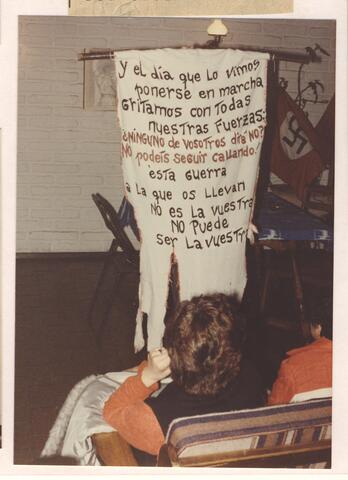 y el día que Lo vimos
ponerse en marcha
Gritamos con todas
nuestras Fuerzas:
¿NINGUNO de vosotros dirá NO?
¡NO podeís seguir callando!
esta guerra
a La que os llevan
No es La vuestra
NO PUede
ser La vuestra